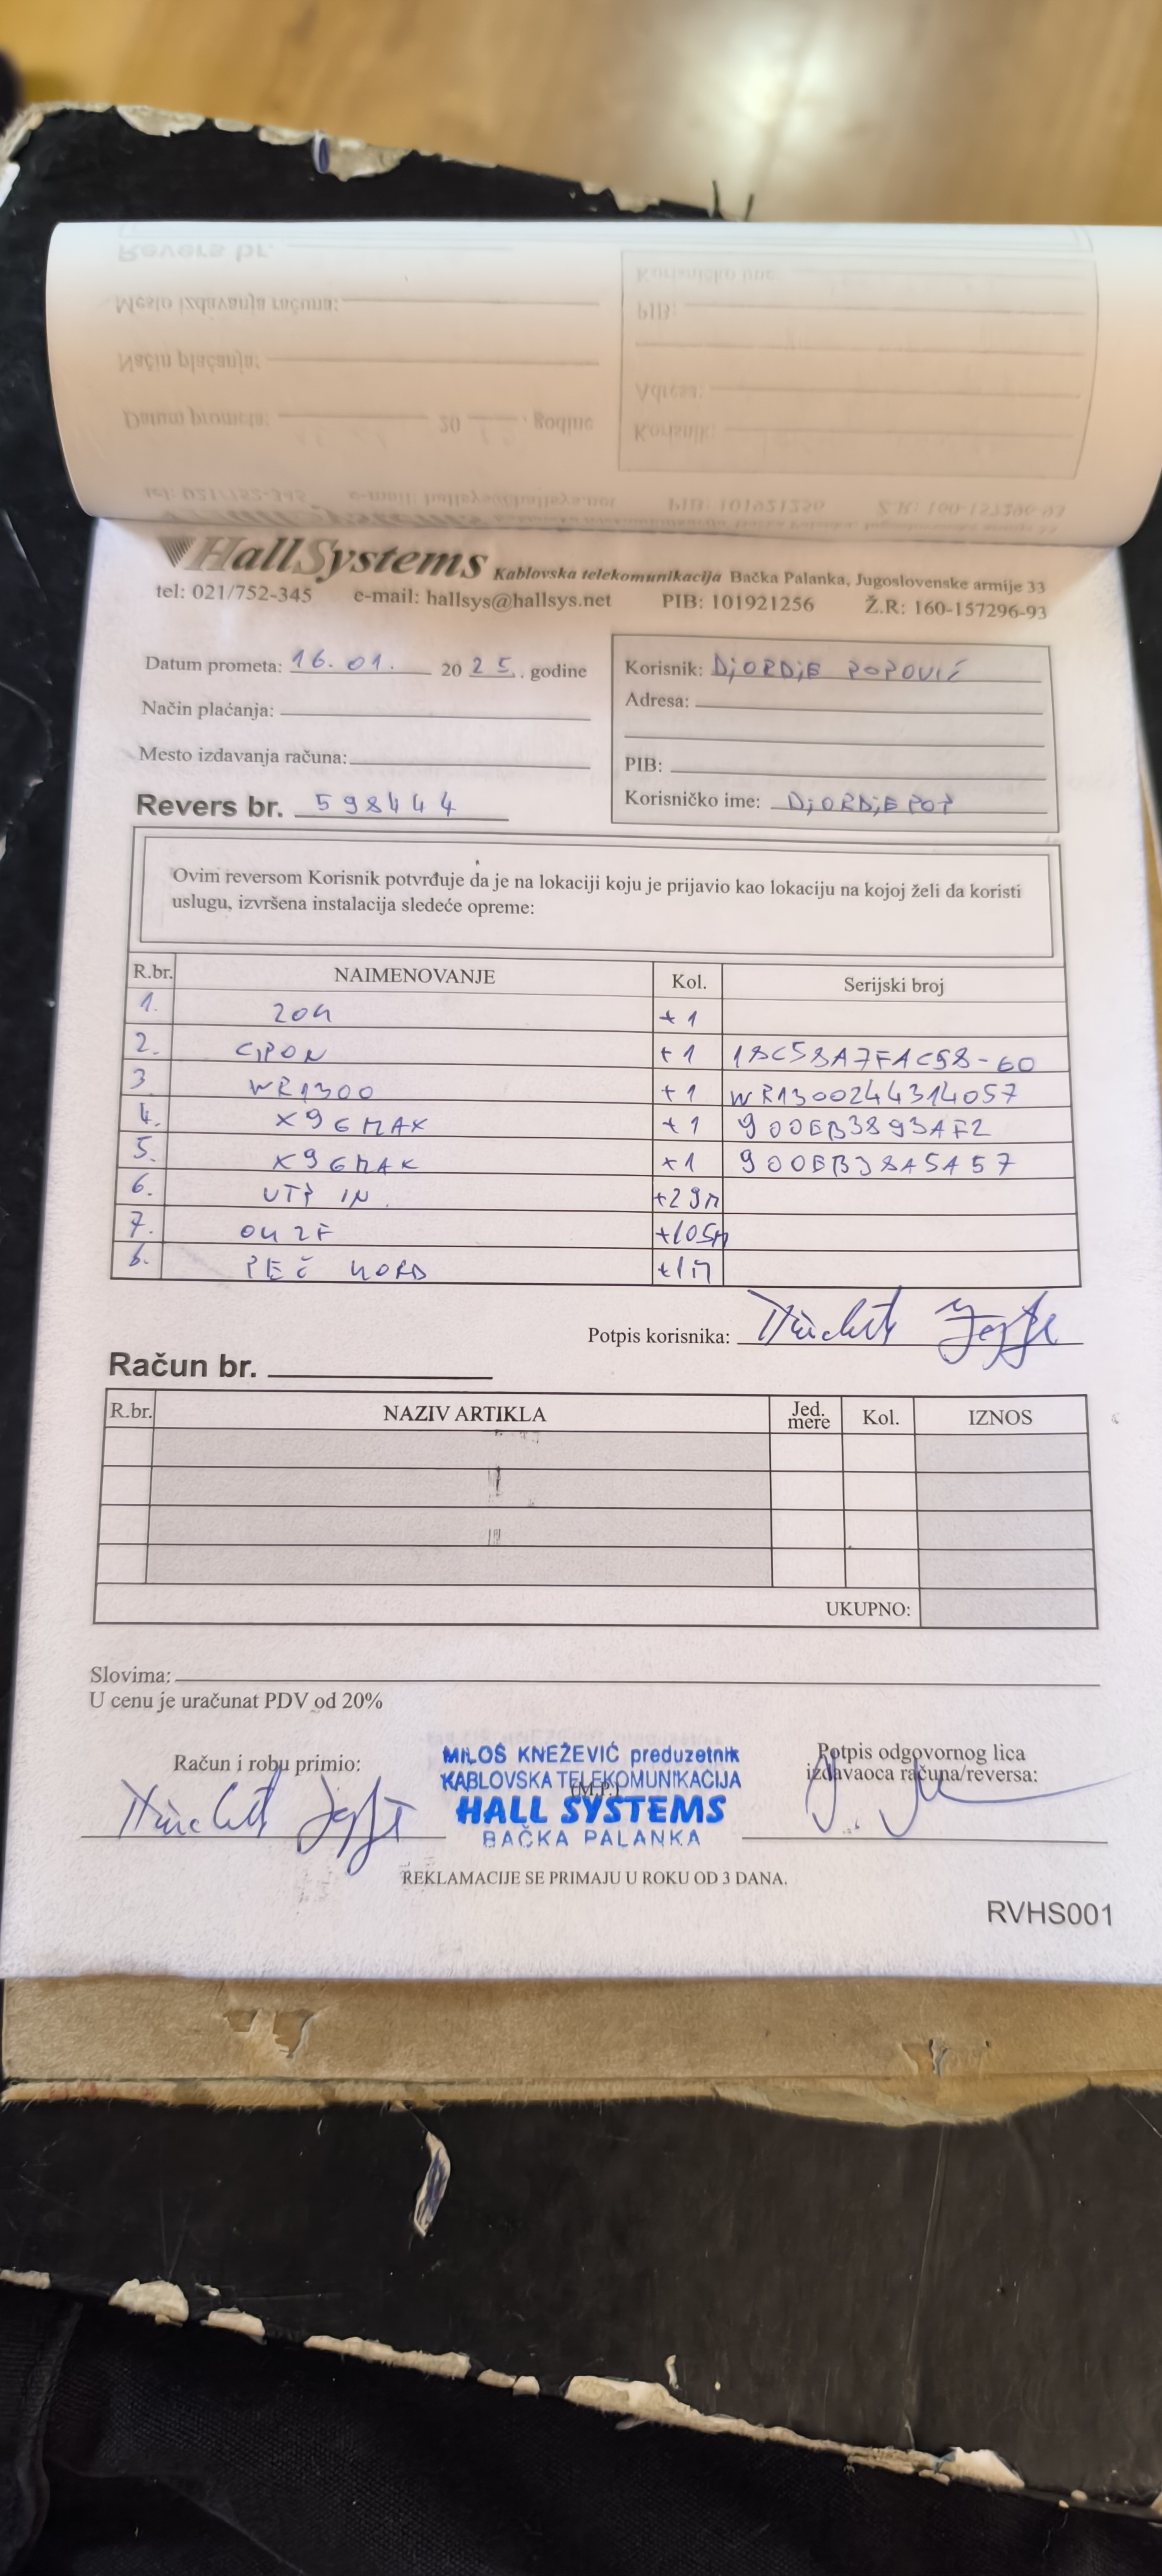 HallSystems Kablovska telekomunikacija Bačka Palanka, Jugoslovenske armije 33
tel: 021/752-345 e-mail: hallsys@hallsys.net PIB: 101921256 Ž.R: 160-157296-93
Datum prometa: 16.01. 20 25. godine
Način plaćanja:
Mesto izdavanja računa:
Revers br. 598444
Korisnik: DjORDjE POPOVIĆ
Adresa:
PIB:
Korisničko ime: DjORDjEPOP
Ovim reversom Korisnik potvrđuje da je na lokaciji koju je prijavio kao lokaciju na kojoj želi da koristi
uslugu, izvršena instalacija sledeće opreme:
R.br. NAIMENOVANJE Kol. Serijski broj
1. +1
2. GPON +1 18C58A7FAC58-60
3 WR1300 +1 WR1300244314057
4. X96MAX +1 900EB3893AF2
5. X96MAX +1 900EB38A5A57
6. UTP IN. +29M
7. 2F +105M
PEČ +1M
Potpis korisnika:
Račun br.
R.br. NAZIV ARTIKLA Jed. mere Kol. IZNOS
UKUPNO:
Slovima:
U cenu je uračunat PDV od 20%
Račun i robu primio:
MILOŠ KNEŽEVIĆ preduzetnik
KABLOVSKA TELEKOMUNIKACIJA
(M.P.)
HALL SYSTEMS
BAČKA PALANKA
Potpis odgovornog lica
izdavaoca računa/reversa:
REKLAMACIJE SE PRIMAJU U ROKU OD 3 DANA.
RVHS001